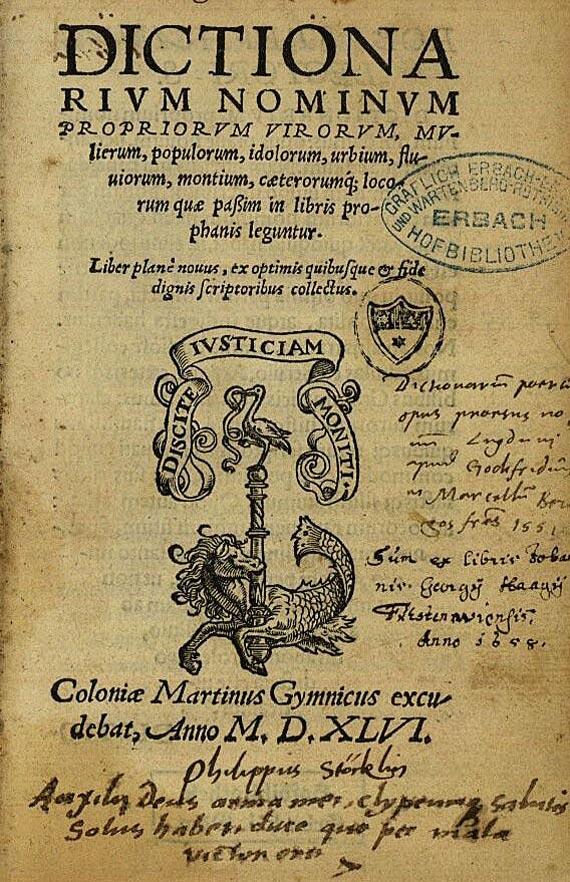 DICTIONA
RIVM NOMINVM
PROPRIORVM VIRORVM, MV-
lierum, populorum, idolorum, urbium, flu-
uiorum, montium, cæterorumq́; loco-
rum quæ paßim in libris pro-
phanis leguntur.
Liber planè nouus, ex optimis quibuſque & fide
dignis ſcriptoribus collectus.
GRÄFLICH ERBACH-
UND WARTENBERG-ROTH
ERBACH
HOFBIBLIOTHEK
DISCITE
IVSTICIAM
MONITI.
Dictionariū
opus
Lugduni
apud Godfridū
Marcellū
frēs 1551
Sum ex libris Joha
nis Georgÿ Haagÿ
Anno 1658.
Coloniæ Martinus Gymnicus excu-
debat, Anno M. D. XLVI.
Philippus
Deus arma mei, clypeumq salutis
Solus habet duce quo per mala
victor ero